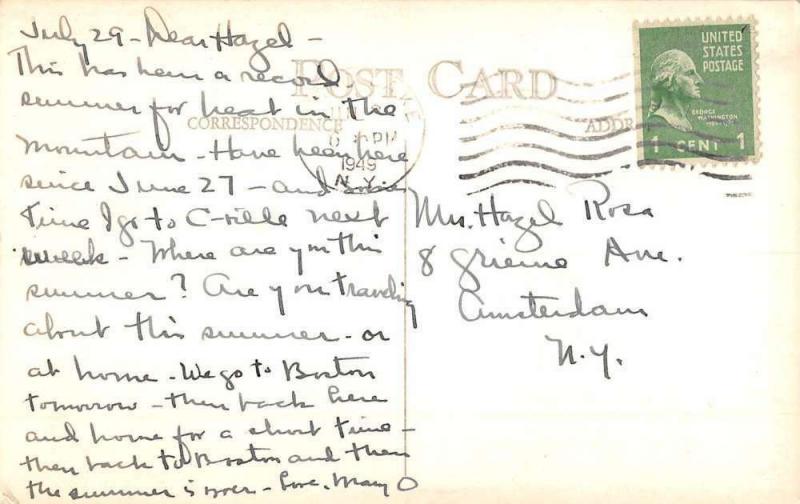 July 29 - Dear Hazel -
This has been a record
summer for heat in the
mountain - Have been here
since June 27 - and
time I go to C-ville next
week - Where are you this
summer? Are you traveling
about this summer - or
at home - We go to Boston
tomorrow - then back here
and home for a short time -
then back to Boston and then
the summer is over - Love, Mary O
POST CARD
CORRESPONDENCE
PM
1949
N.Y.
UNITED
STATES
POSTAGE
GEORGE
WASHINGTON
1 CENT 1
Mrs. Hazel Rosa
8 Grieme Ave.
Amsterdam
N.Y.